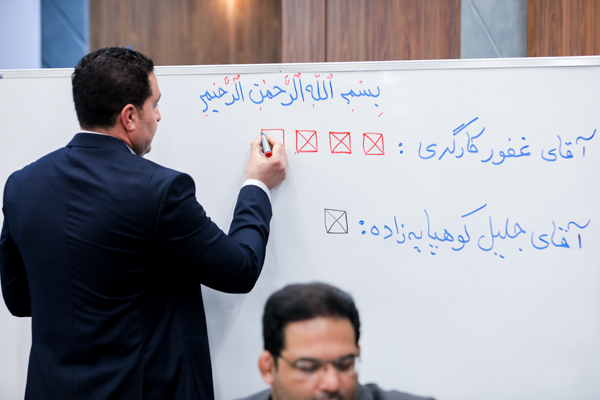 بِسْمِ ٱللّٰهِ ٱلرَّحمٰنِ ٱلرَّحیٖمِ
آقای غفور کارگری :
آقای جلیل کوهپایه زاده :